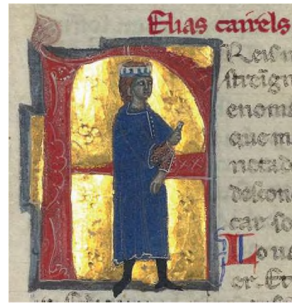 Elias cairels
Reisin
streign
enoma
que m
netad
descon
car so
Lo ua
er. Et